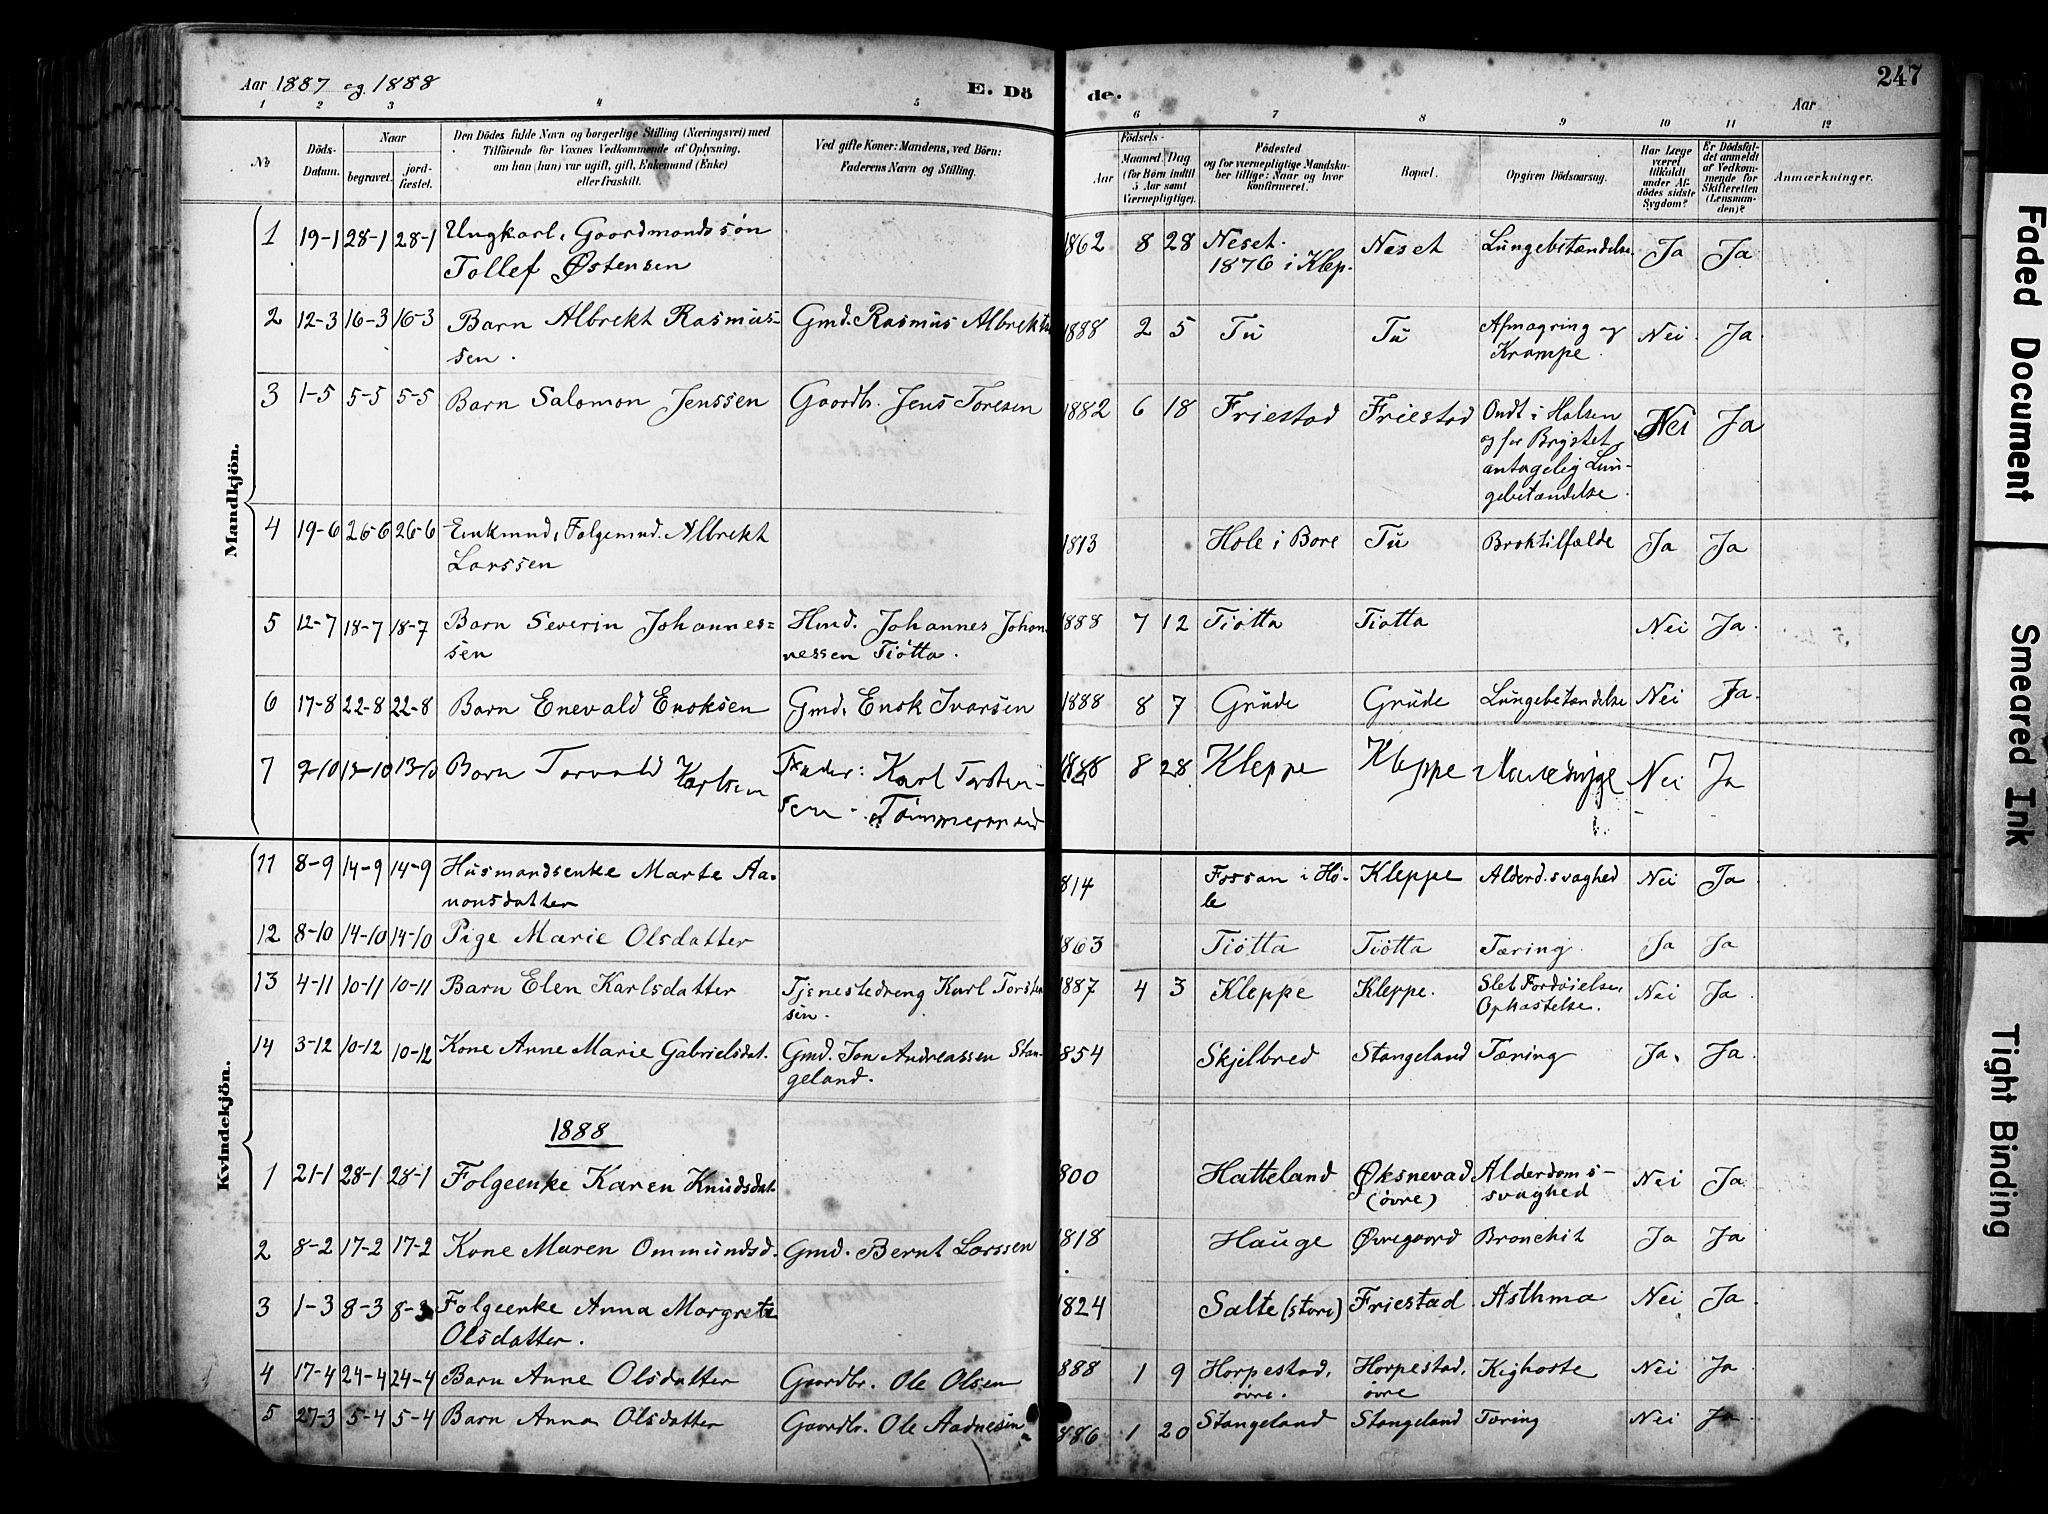 Aar 1887 og 1888
E. Dö
de.
Aar
247
1 2 3 4 5 6 7 8 9 10 11 12
№
Döds-
Datum.
Naar
begravet.
jord-
fæstet.
Den Dödes fulde Navn og borgerlige Stilling (Næringsvei) med
Tilföiende for Voxnes Vedkommende af Oplysning,
om han (hun) var ugift, gift, Enkemand (Enke)
eller fraskilt.
Ved gifte Koner: Mandens, ved Börn:
Faderens Navn og Stilling.
Födsels-
Aar
Maaned. Dag
(for Börn indtil
5 Aar samt
Værnepligtige).
Födested
og for værnepligtige Mandsku-
ber tillige: Naar og hvor
konfirmeret.
Bopæl.
Opgiven Dödsaarsag.
Har Læge
været
tilkaldt
under Af-
dödes sidste
Sygdom?
Er Dödsfal-
det anmeldt
af Vedkom-
mende for
Skifteretten
(Lensman-
den)?
Anmærkninger.
Mandkjön.
1 19-1 28-1 28-1 Ungkarl, Gaardmandssøn 1862 8 28 Neset. Neset Lungebetændelse. Ja Ja
Tollef Østensen 1876 i Klep.
2 12-3 16-3 16-3 Barn Albrekt Rasmus- Gmd. Rasmus Albrekts 1888 2 5 Tu Tu Afmagring og Nei Ja
sen. Krampe.
3 1-5 5-5 5-5 Barn Salomon Jenssen Gaardbr. Jens Toresen 1882 6 18 Friestad Friestad Ondt i Halsen Nei Ja
og for Brystet,
antagelig Lun-
gebetændelse.
4 19-6 26-6 26-6 Enkmnd, Folgemnd. Albrekt 1813 Hole i Bore Tu Broktilfælde Ja Ja
Larssen
5 12-7 18-7 18-7 Barn Severin Johannes- Hmd. Johannes Johan- 1888 7 12 Tiøtta Tiøtta Nei Ja.
sen nessen Tiøtta.
6 17-8 22-8 22-8 Barn Enevald Enoksen Gmd. Enok Ivarsen 1888 8 7 Grude Grude Lungebetændelse Nei Ja.
7 9-10 13-10 13-10 Barn Torvald Karlsen Fader: Karl Torsten- 1888 8 28 Kleppe Kleppe Nei Ja
sen - Tømmermand
Kvindekjön.
11 8-9 14-9 14-9 Husmandsenke Marte Aa- 1814 Fossan i Hø- Kleppe Alderd.svaghed Nei Ja
nonsdatter le
12 8-10 14-10 14-10 Pige Marie Olsdatter 1863 Tiøtta Tiøtta Tæring. Ja Ja
13 4-11 10-11 10-11 Barn Elen Karlsdatter Tjenestedreng Karl Torsten 1887 4 3 Kleppe Kleppe. Slet Fordøielse, Nei Ja
sen. Opkastelse.
14 3-12 10-12 10-12 Kone Anne Marie Gabrielsdat. Gmd. Jon Andreassen Stan- 1854 Skjelbred Stangeland Tæring Ja. Ja.
geland.
1888
1 21-1 28-1 28-1 Folgeenke Karen Knudsdat. 1800 Hatteland Øksnevad Alderdoms- Nei Ja
(øvre) svaghed
2 8-2 17-2 17-2 Kone Maren Ommundsd. Gmd. Bernt Larssen 1818 Hauge Øvregaard Bronchit Ja Ja
3 1-3 8-3 8-3 Folgeenke Anna Margrete 1824 Salte (store) Friestad. Asthma Nei Ja.
Olsdatter.
4 17-4 24-4 24-4 Barn Anne Olsdatter Gaardbr. Ole Olsen 888 1 9 Horpestad, Horpestad, Kighoste Nei Ja
øvre. øvre
5 27-3 5-4 5-4 Barn Anna Olsdatter Gaardbr. Ole Aadnesen 886 1 20 Stangeland Stangeland Tæring Nei Ja
Faded Document
Smeared Ink
Tight Binding